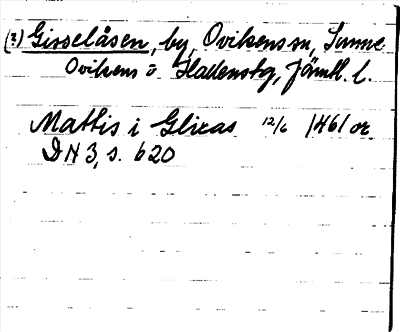 (?) Gisselåsen, by, Ovikens sn, Sunne
Ovikens o Hallens tg, Jämtl. l.
Mattis i Gliсas 12/6 1461 or
DN 3, s. 620